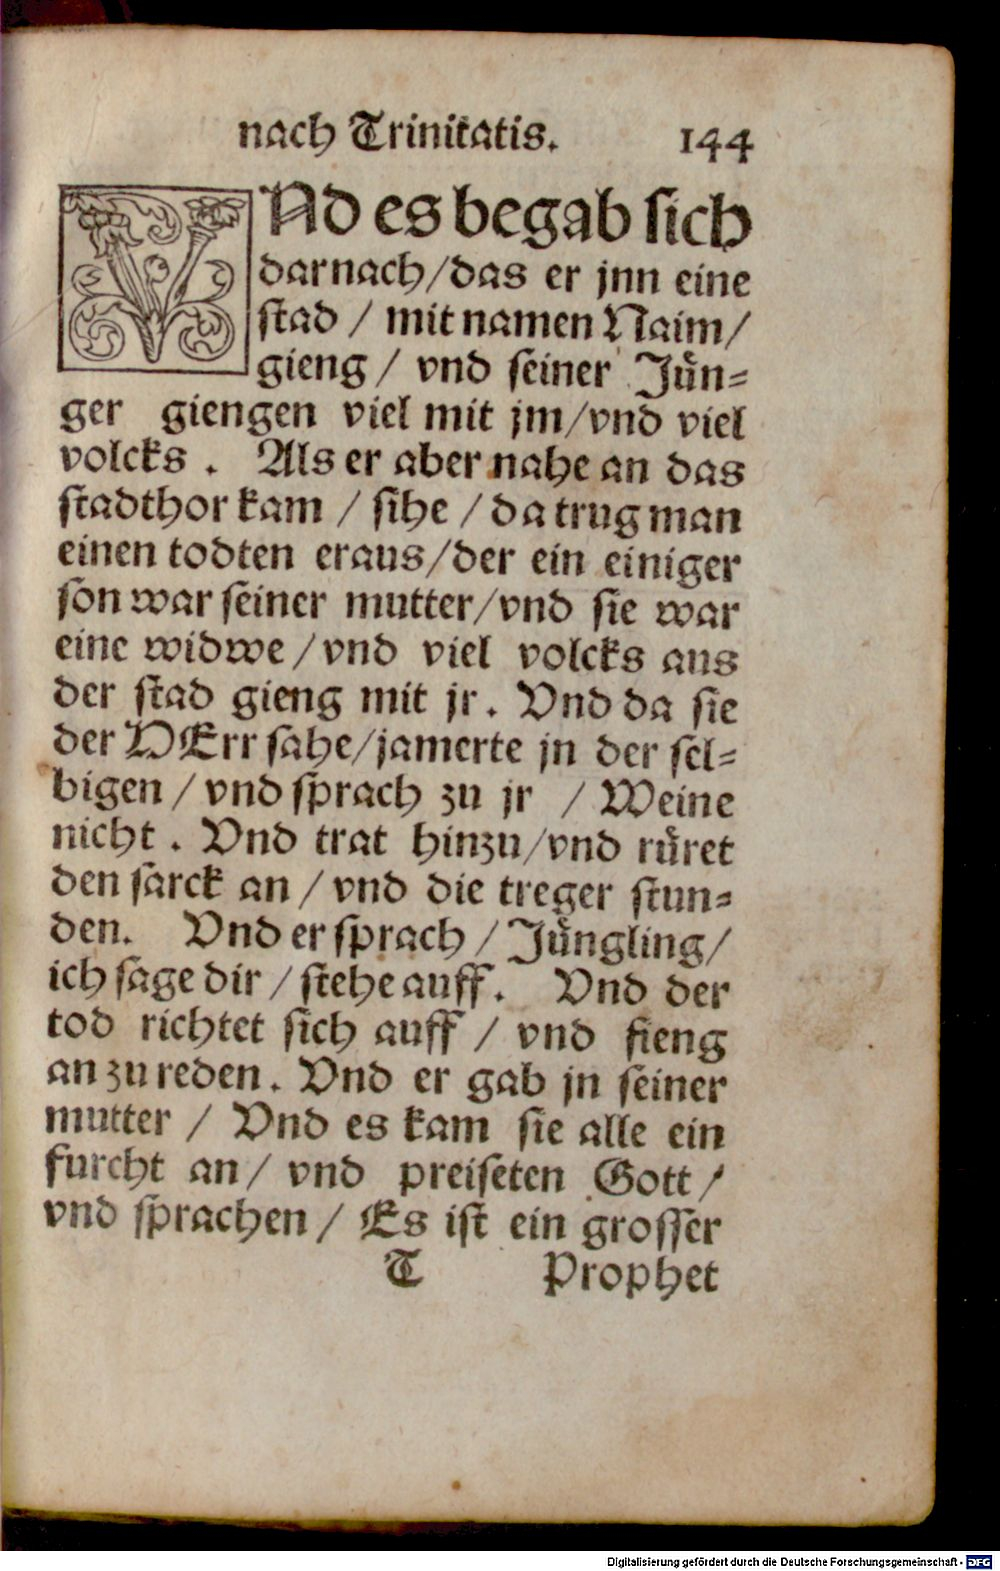 nach Trinitatis. 144
VNd es begab sich
darnach/das er jnn eine
stad / mit namen Naim/
gieng / vnd seiner Jün-
ger giengen viel mit jm/vnd viel
volcks . Als er aber nahe an das
stadthor kam / sihe / da trug man
einen todten eraus/der ein einiger
son war seiner mutter/vnd sie war
eine widwe / vnd viel volcks aus
der stad gieng mit jr. Vnd da sie
der HErr sahe/jamerte jn der sel-
bigen / vnd sprach zu jr / Weine
nicht . Vnd trat hinzu/vnd rüret
den sarck an / vnd die treger stun-
den. Vnd er sprach / Jüngling/
ich sage dir / stehe auff. Vnd der
tod richtet sich auff / vnd fieng
an zu reden. Vnd er gab jn seiner
mutter / Vnd es kam sie alle ein
furcht an/ vnd preiseten Gott/
vnd sprachen / Es ist ein grosser
T Prophet
Digitalisierung gefördert durch die Deutsche Forschungsgemeinschaft - DFG